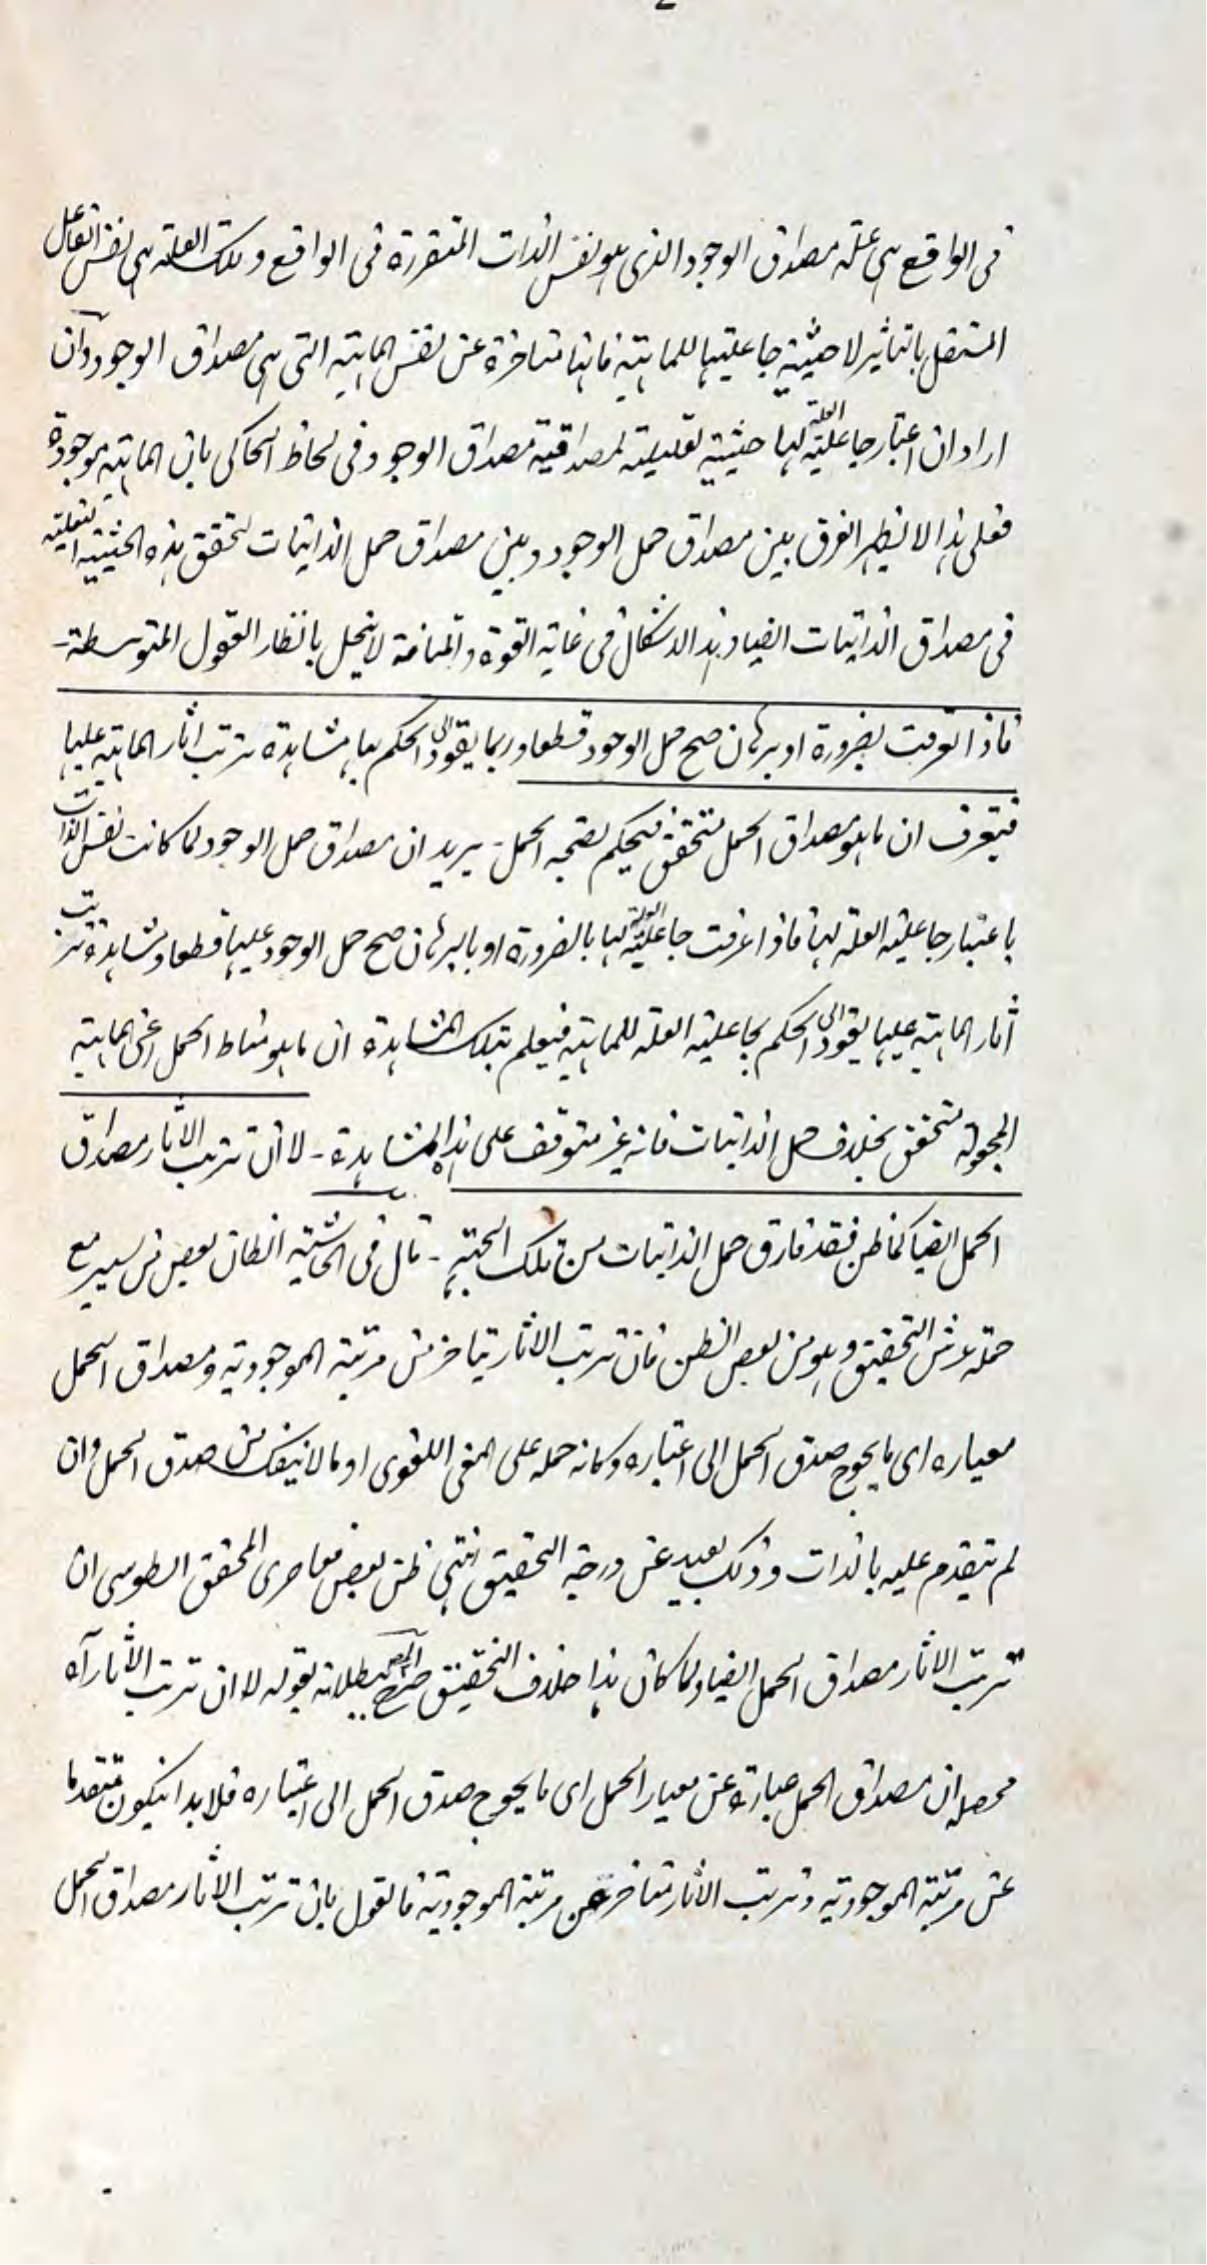 فى الواقع هى علة مصداق الوجود الذى هو نفس الذات المتقررة فى الواقع وتلك العلة هى نفس الفاعل
المستقل بالتاثير لا حيثية جاعليتها للماهية فانها متاخرة عن نفس الماهية التى هى مصداق الوجود وان
اراد ان اعتبار جاعلية العلة لها حيثية تعليلية لمصداقية مصداق الوجود فى لحاظ الحاكى بان الماهية موجودة
فعلى هذا لا يظهر الفرق بين مصداق حمل الوجود وبين مصداق حمل الذاتيات لتحقق هذه الحيثية التعليلية
فى مصداق الذاتيات ايضا وهذا الاشكال فى غاية القوة والمتانة لا ينحل بانظار العقول المتوسطة-
فاذا تعرفت بضرورة او برهان صح حمل الوجود قطعا وربما يقود الى الحكم بها مشاهدة ترتب اثار الماهية عليها
فيتعرف ان ما هو مصداق الحمل متحقق فيحكم بصحة الحمل - يريد ان مصداق حمل الوجود لما كانت نفس الذات
باعتبار جاعلية العلة لها فاذا عرفت جاعلية العلة لها بالضرورة او بالبرهان صح حمل الوجود عليها قطعا ومشاهدة ترتب
آثار الماهية عليها يقود الى الحكم بجاعلية العلة للماهية فيعلم بتلك المشاهدة ان ما هو مناط الحمل اعنى الماهية
المجعولة متحقق بخلاف حمل الذاتيات فانه غير متوقف على هذه المشاهدة - لا ان ترتب الاثار مصداق
الحمل ايضا كما ظن فقد فارق حمل الذاتيات من تلك الحيثية - قال فى الحاشية الظان بعض من يسير مع
حملة عرش التحقيق وهو من بعض الظن فان ترتب الاثار يتاخر من مرتبة الموجودية ومصداق الحمل
معياره اى ما يحوج صدق الحمل الى اعتباره وكانه حمله على المعنى اللغوى او ما لا ينفك من صدق الحمل وان
لم يتقدم عليه بالذات وذلك بعيد عن درجة التحقيق انتهى ظن بعض معاصرى المحقق الطوسى ان
ترتب الاثار مصداق الحمل ايضا ولما كان هذا خلاف التحقيق صرح المصـ ببطلانه بقوله لا ان ترتب الاثار آه
محصله ان مصداق الحمل عبارة عن معيار الحمل اى ما يحوج صدق الحمل الى اعتباره فلا بد ان يكون متقدما
عن مرتبة الموجودية وترتب الاثار متاخر عن مرتبة الموجودية فالقول بان ترتب الاثار مصداق الحمل